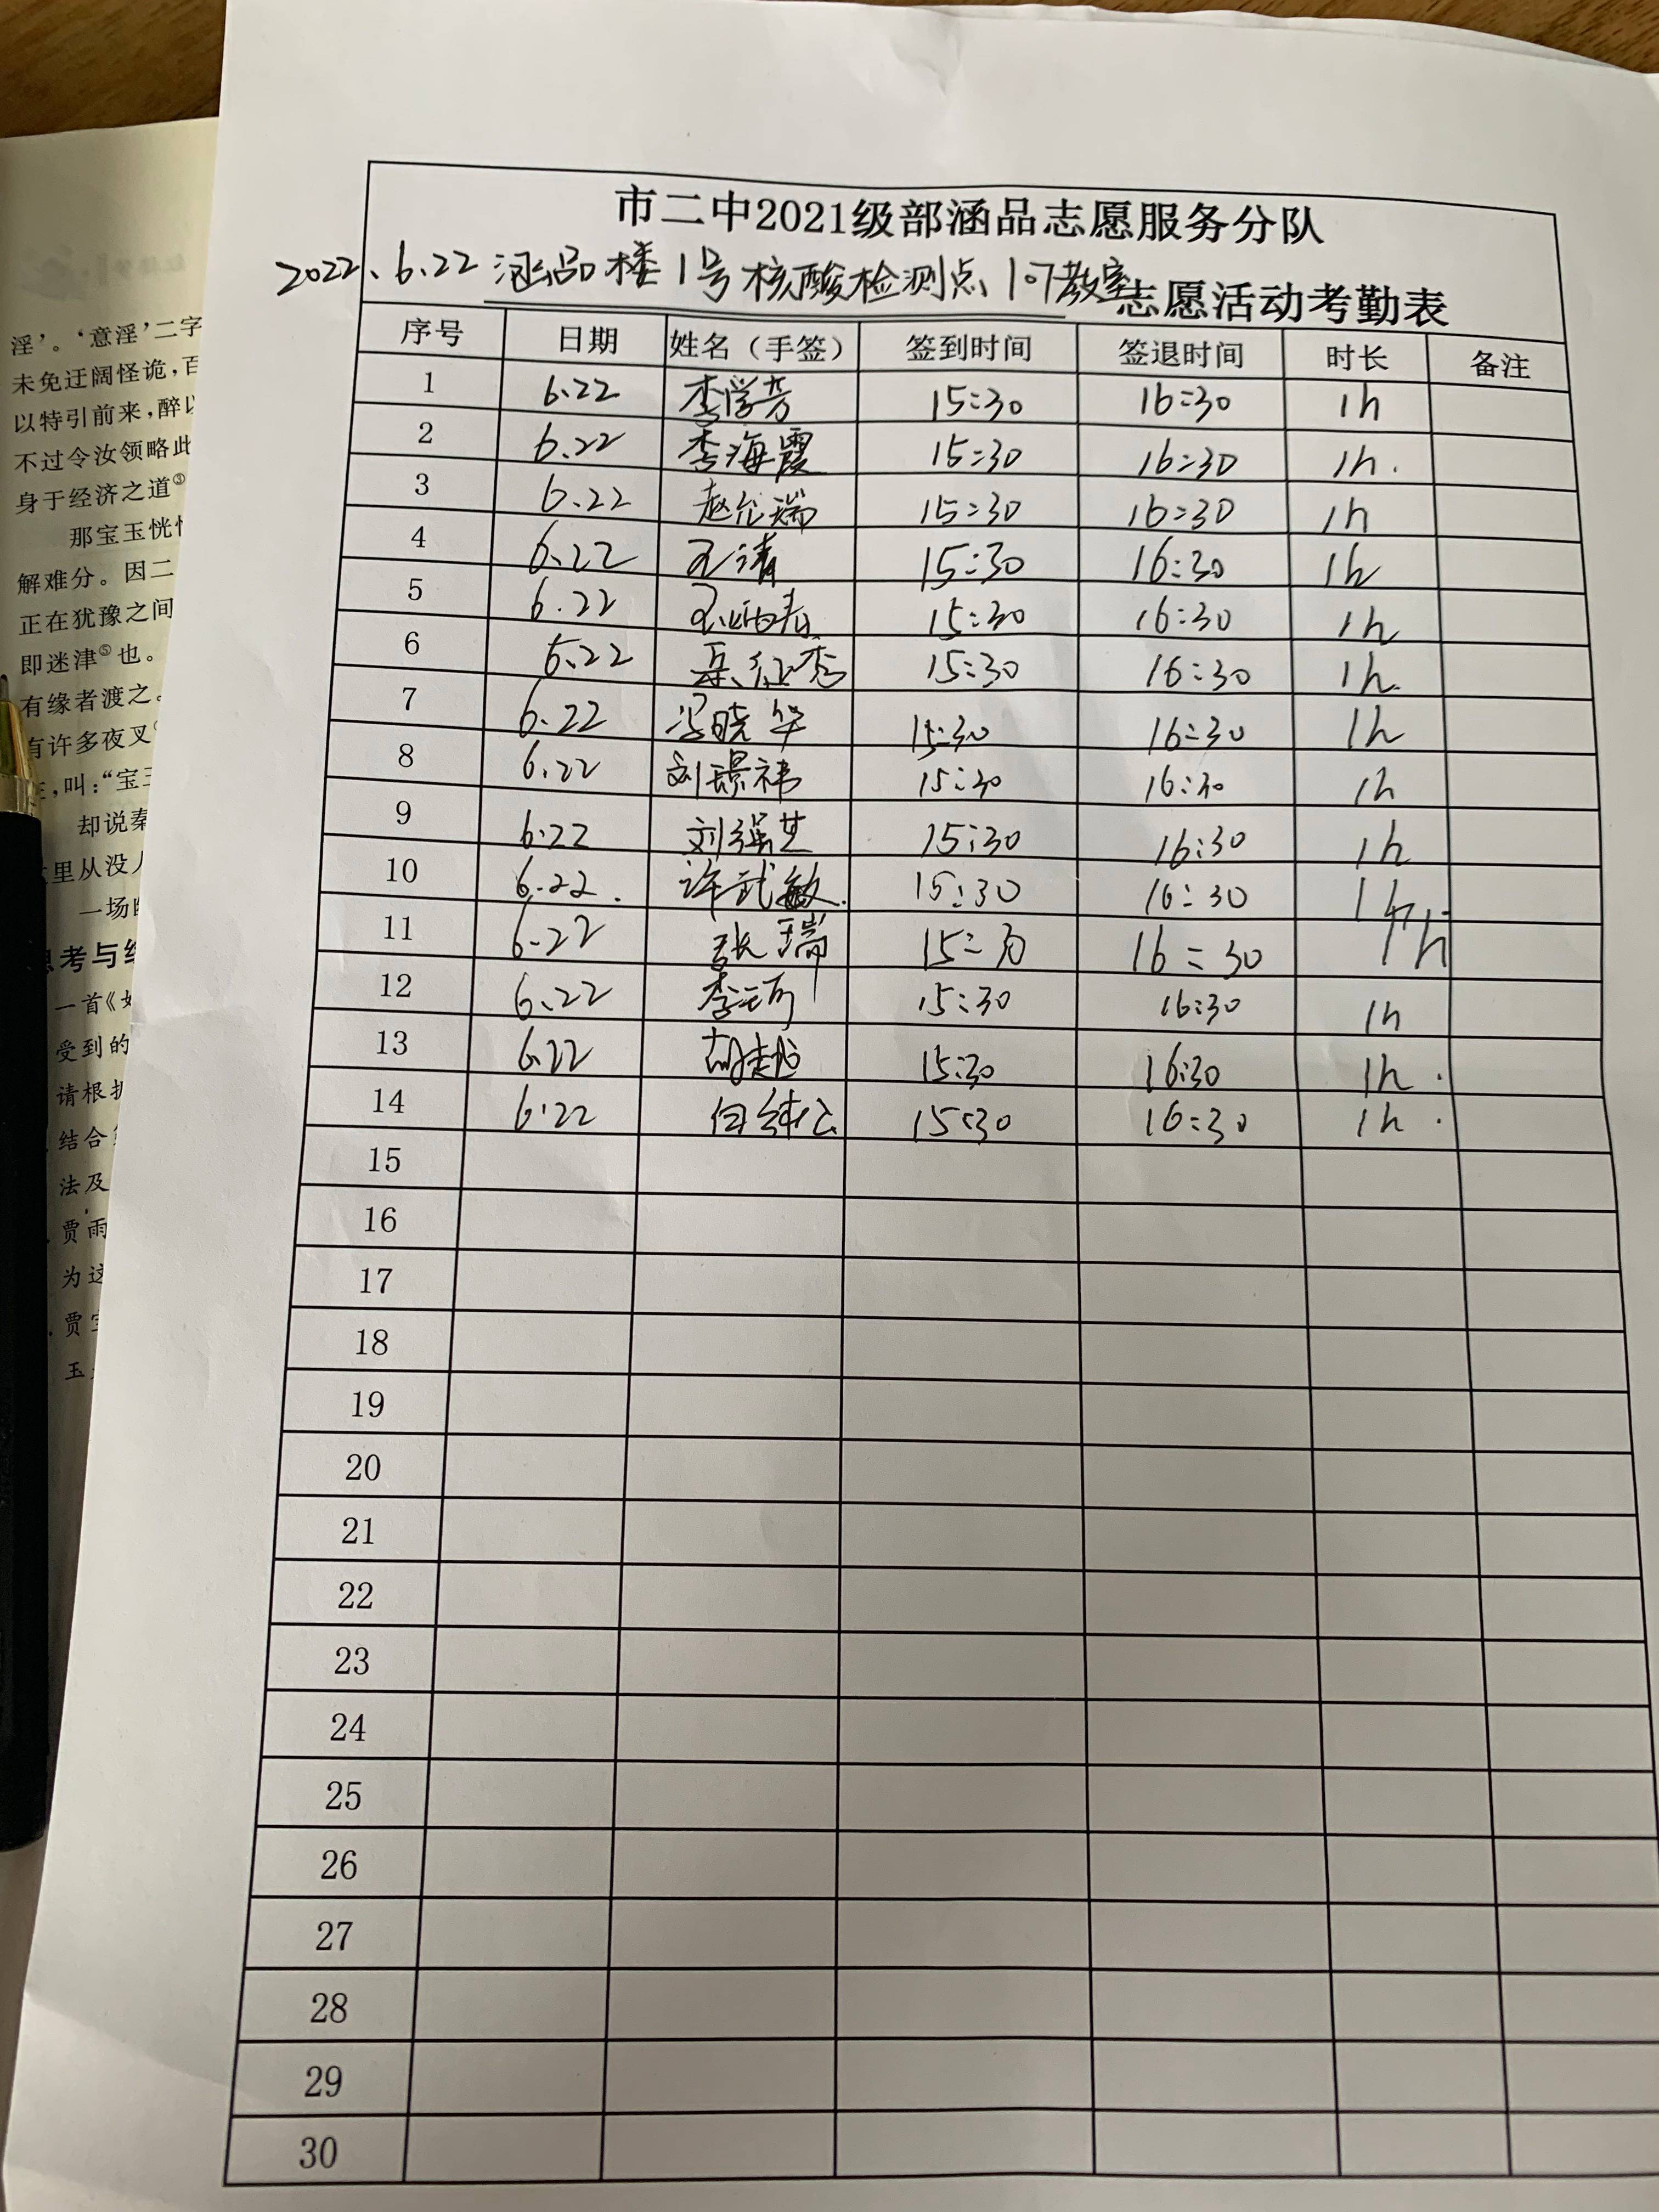 市二中2021级部涵品志愿服务分队
2022.6.22 涵品楼1号核酸检测点107教室志愿活动考勤表
序号 日期 姓名（手签） 签到时间 签退时间 时长 备注
1 6.22 李学芳 15:30 16:30 1h
2 6.22 李海霞 15:30 16:30 1h.
3 6.22 赵伦瑞 15:30 16:30 1h
4 6.22 15:30 16:30 1h
5 6.22 15:30 16:30 1h
6 6.22 15:30 16:30 1h.
7 6.22 冯晓华 15:30 16:30 1h
8 6.22 刘璟祎 15:30 16:30 1h
9 6.22 刘强芝 15:30 16:30 1h
10 6.22. 许武敏. 15:30 16:30 1h
11 6.22 张瑞 15:30 16:30 1h
12 6.22 李珂 15:30 16:30 1h
13 6.22 胡越 15:30 16:30 1h.
14 6.22 15:30 16:30 1h.
15
16
17
18
19
20
21
22
23
24
25
26
27
28
29
30
淫’。‘意淫’二字
未免迂阔怪诡，百
以特引前来，醉以
不过令汝领略此
身于经济之道③
那宝玉恍
解难分。因二
正在犹豫之间
即迷津⑤也。
有缘者渡之。
有许多夜叉
，叫：“宝玉
却说秦
里从没人
一场幽
思考与练
一首《
受到的
请根据
结合
法及
贾雨
为这
贾宝
玉